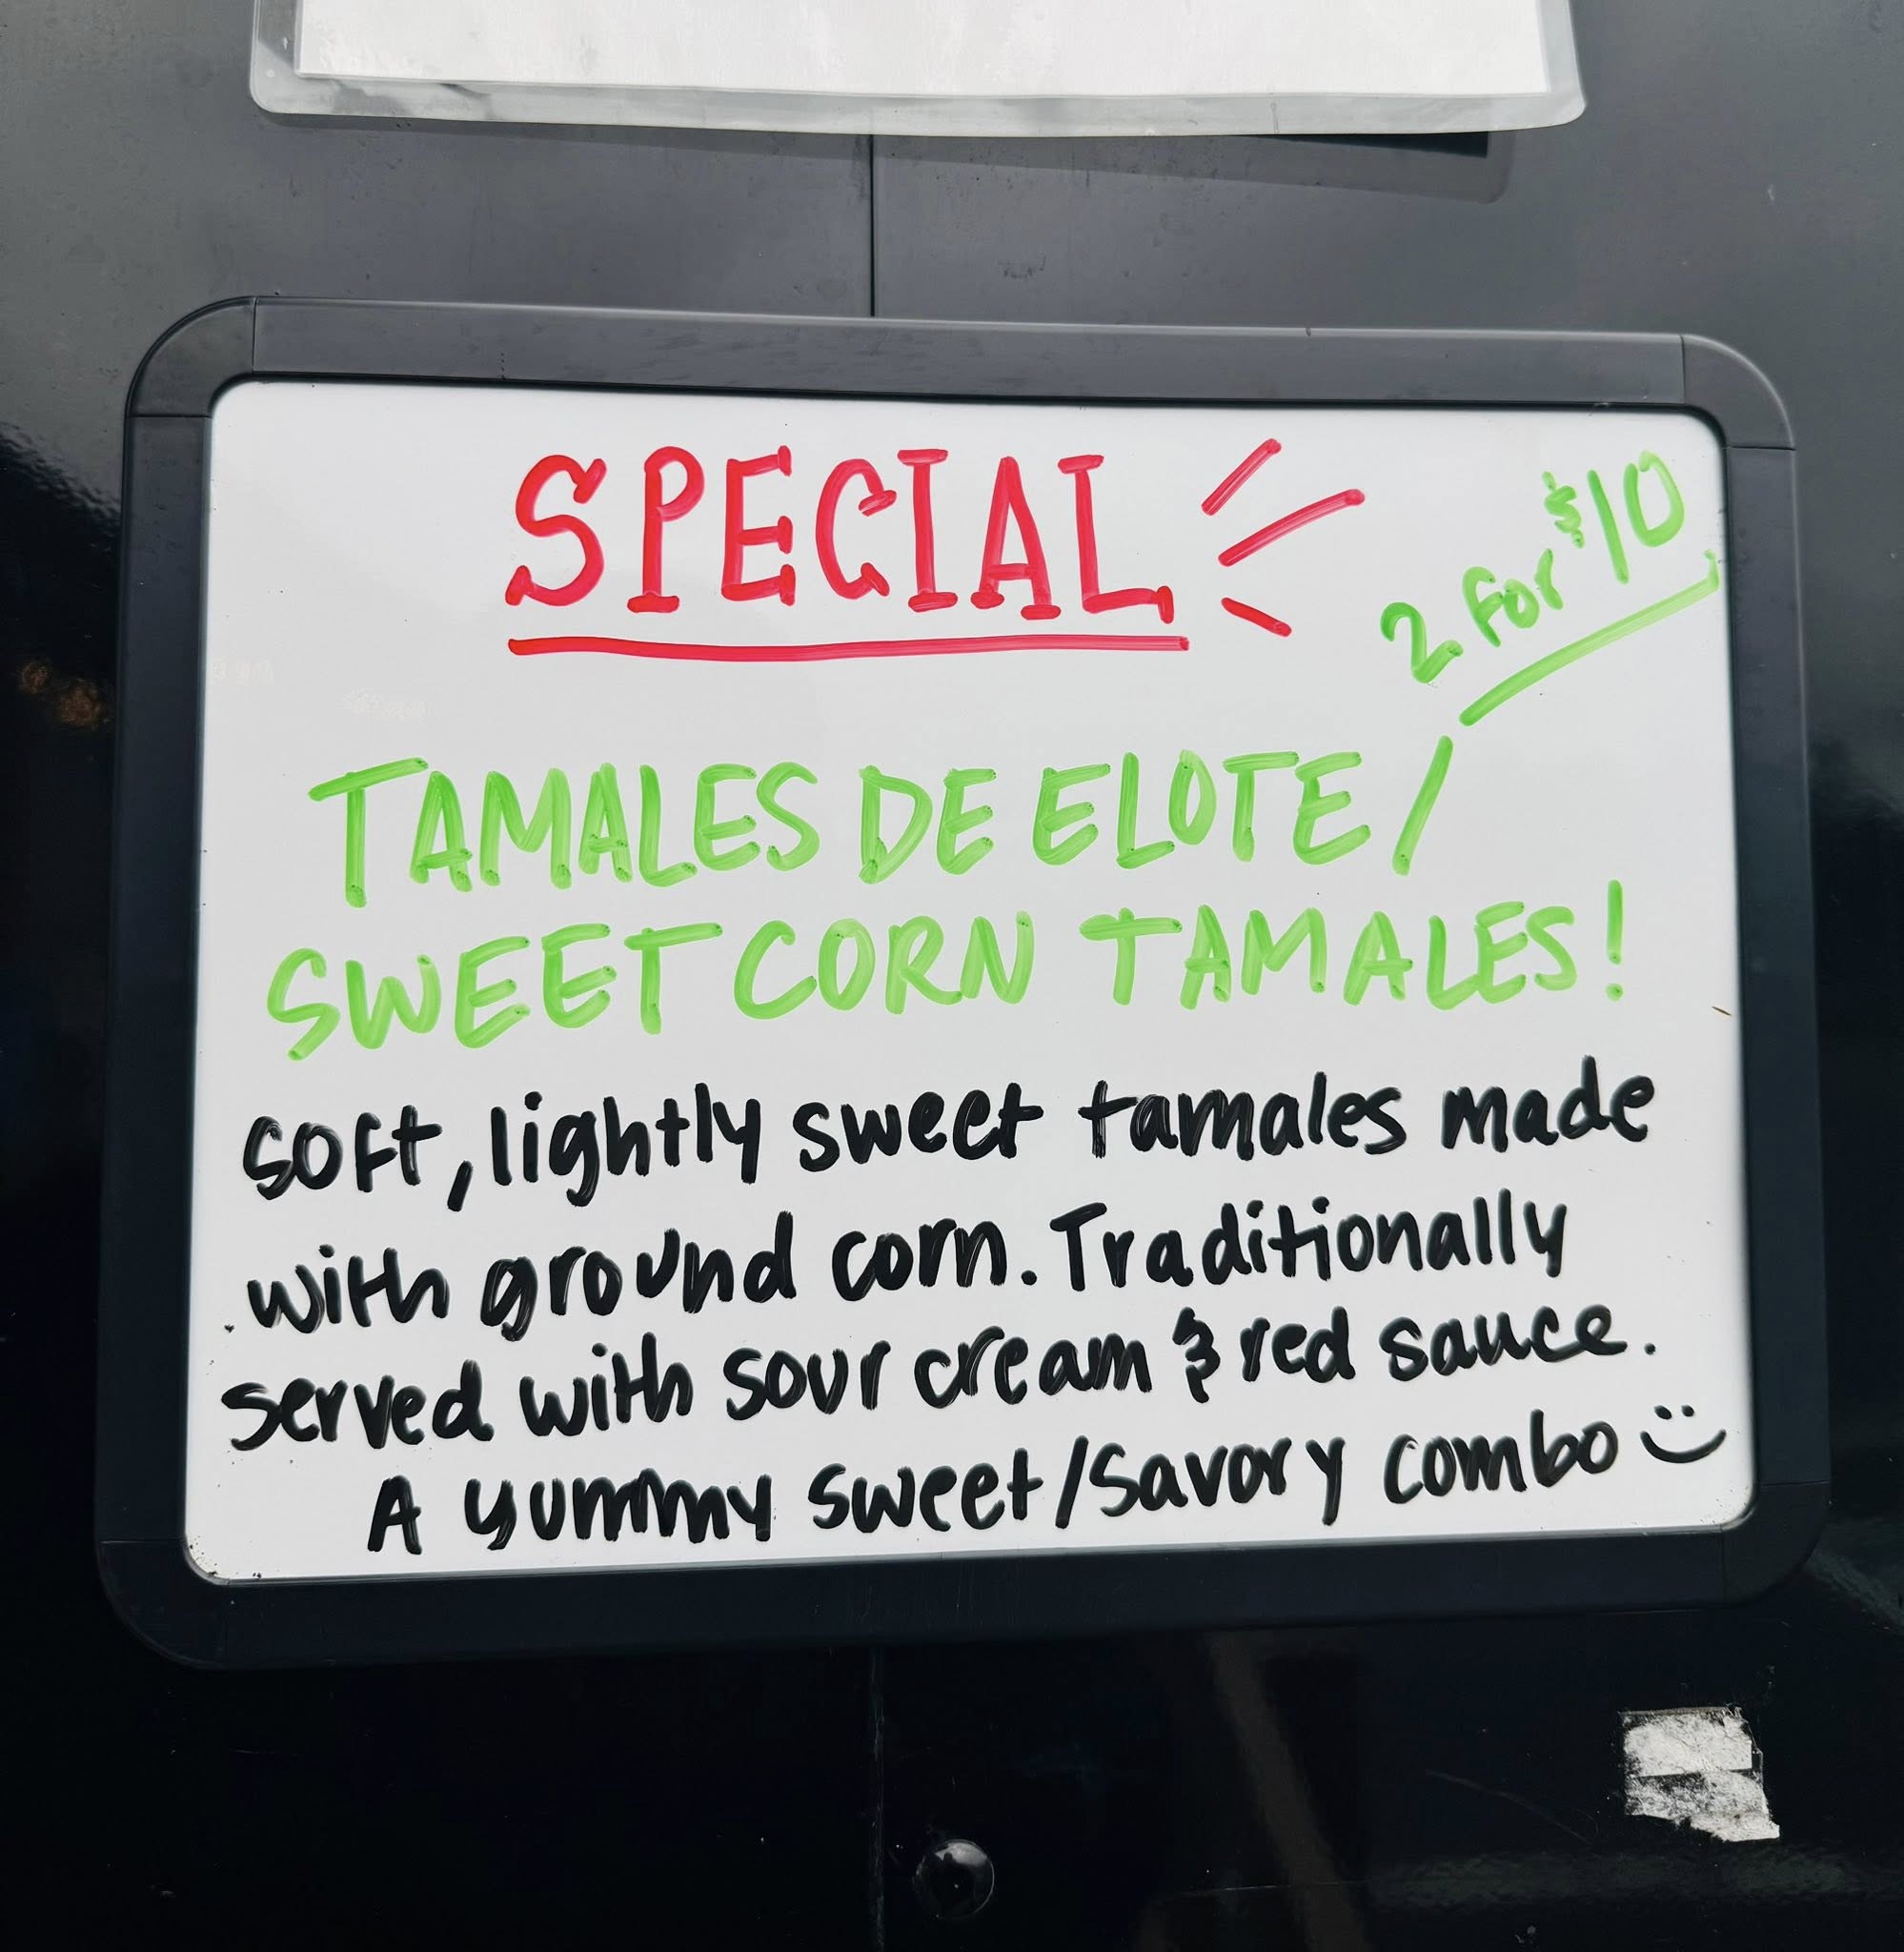 SPECIAL
2 for $10
TAMALES DE ELOTE/
SWEET CORN TAMALES!
Soft, lightly sweet tamales made
with ground corn. Traditionally
served with sour cream & red sauce.
A yummy sweet/savory combo